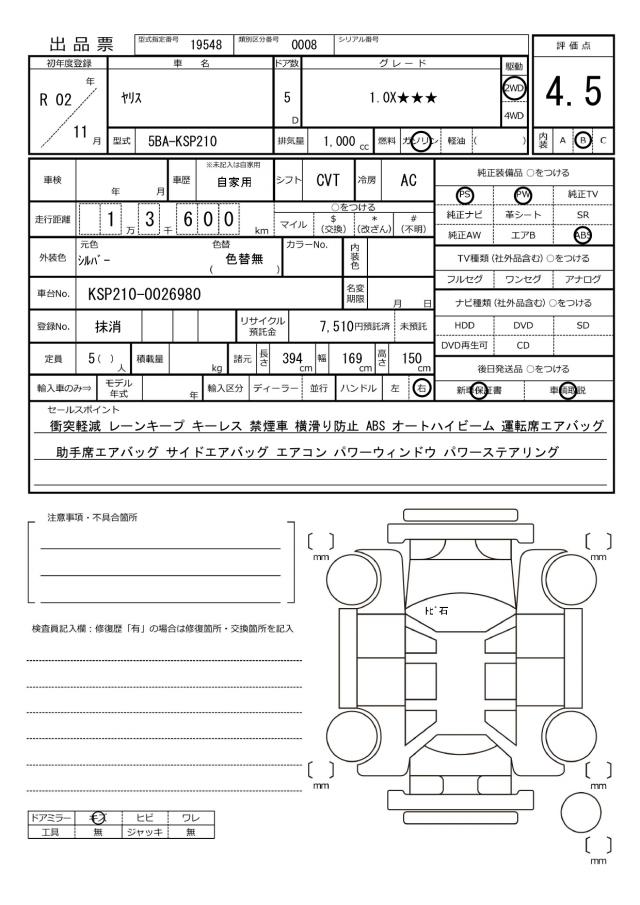 出品票 型式指定番号 19548 類別区分番号 0008 シリアル番号
評価点
4.5
内装 A B C
初年度登録 車名 ドア数 グレード 駆動
R 02 年 11 月 ヤリス 5 D 1.0X★★★ 2WD 4WD
型式 5BA-KSP210 排気量 1,000 cc 燃料 ガソリン 軽油 ( )
車検 年 月 車歴 ※未記入は自家用 自家用 シフト CVT 冷房 AC
走行距離 1 万 3 千 6 0 0 km ○をつける
マイル $ (交換) * (改ざん) # (不明)
外装色 元色 シルバー 色替 ( 色替無 ) カラーNo. 内装色
車台No. KSP210-0026980 名変期限 月 日
登録No. 抹消 リサイクル預託金 7,510円預託済 未預託
定員 5 ( ) 人 積載量 kg 諸元 長さ 394 cm 幅 169 cm 高さ 150 cm
輸入車のみ⇒ モデル年式 年 輸入区分 ディーラー 並行 ハンドル 左 右
純正装備品 ○をつける
PS PW 純正TV
純正ナビ 革シート SR
純正AW エアB ABS
TV種類(社外品含む) ○をつける
フルセグ ワンセグ アナログ
ナビ種類(社外品含む) ○をつける
HDD DVD SD
DVD再生可 CD
後日発送品 ○をつける
新車保証書 車輌取説
セールスポイント
衝突軽減 レーンキープ キーレス 禁煙車 横滑り防止 ABS オートハイビーム 運転席エアバッグ
助手席エアバッグ サイドエアバッグ エアコン パワーウィンドウ パワーステアリング
注意事項・不具合箇所
検査員記入欄:修復歴「有」の場合は修復箇所・交換箇所を記入
[ ] mm
[ ] mm
トビ石
[ ] mm
[ ] mm
[ ] mm
ドアミラー キズ ヒビ ワレ
工具 無 ジャッキ 無